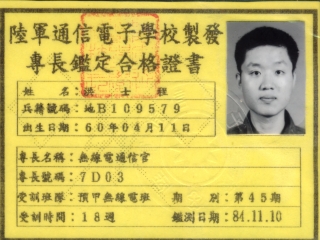 陸軍通信電子學校製發
專長鑑定合格證書
姓名:洪士程
兵籍號碼:地B109579
出生日期:60年04月11日
專長名稱:無線電通信官
專長號碼:7D03
受訓班隊:預甲無線電班 期別:第45期
受訓時間:18週 鑑測日期:84.11.10